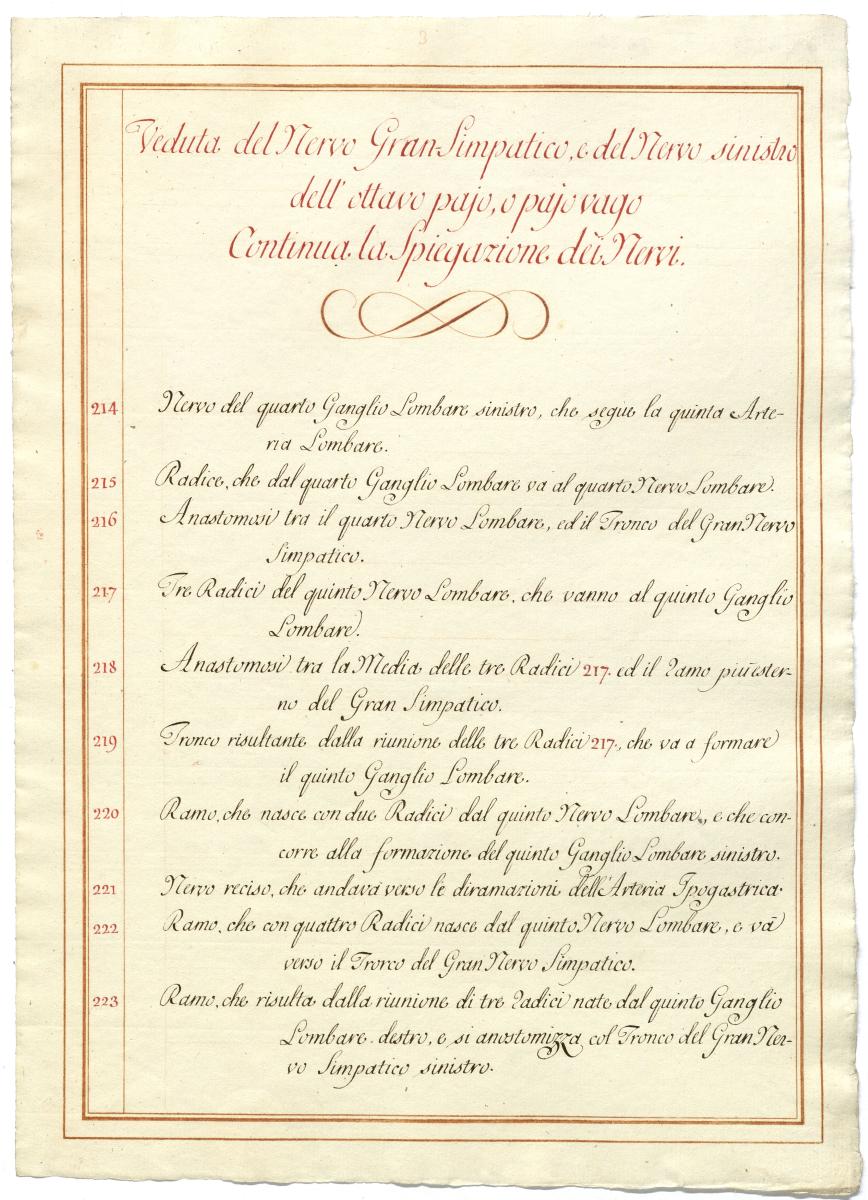 3
Veduta del Nervo Gran-Simpatico, e del Nervo sinistro
dell' ottavo pajo, o pajo vago
Continua la Spiegazione dei Nervi.
214 Nervo del quarto Ganglio Lombare sinistro, che segue la quinta Arte-
ria Lombare.
215 Radice, che dal quarto Ganglio Lombare va al quarto Nervo Lombare.
216 Anastomosi tra il quarto Nervo Lombare, ed il Tronco del Gran Nervo
Simpatico.
217 Tre Radici del quinto Nervo Lombare, che vanno al quinto Ganglio
Lombare.
218 Anastomosi tra la Media delle tre Radici 217. ed il Ramo più ester-
no del Gran Simpatico.
219 Tronco risultante dalla riunione delle tre Radici 217., che va a formare
il quinto Ganglio Lombare.
220 Ramo, che nasce con due Radici dal quinto Nervo Lombare, e che con-
corre alla formazione del quinto Ganglio Lombare sinistro.
221 Nervo reciso, che andava verso le diramazioni dell'Arteria Ipogastrica.
222 Ramo, che con quattro Radici nasce dal quinto Nervo Lombare, e và
verso il Tronco del Gran Nervo Simpatico.
223 Ramo, che risulta dalla riunione di tre Radici nate dal quinto Ganglio
Lombare destro, e si anostomizza col Tronco del Gran Ner-
vo Simpatico sinistro.